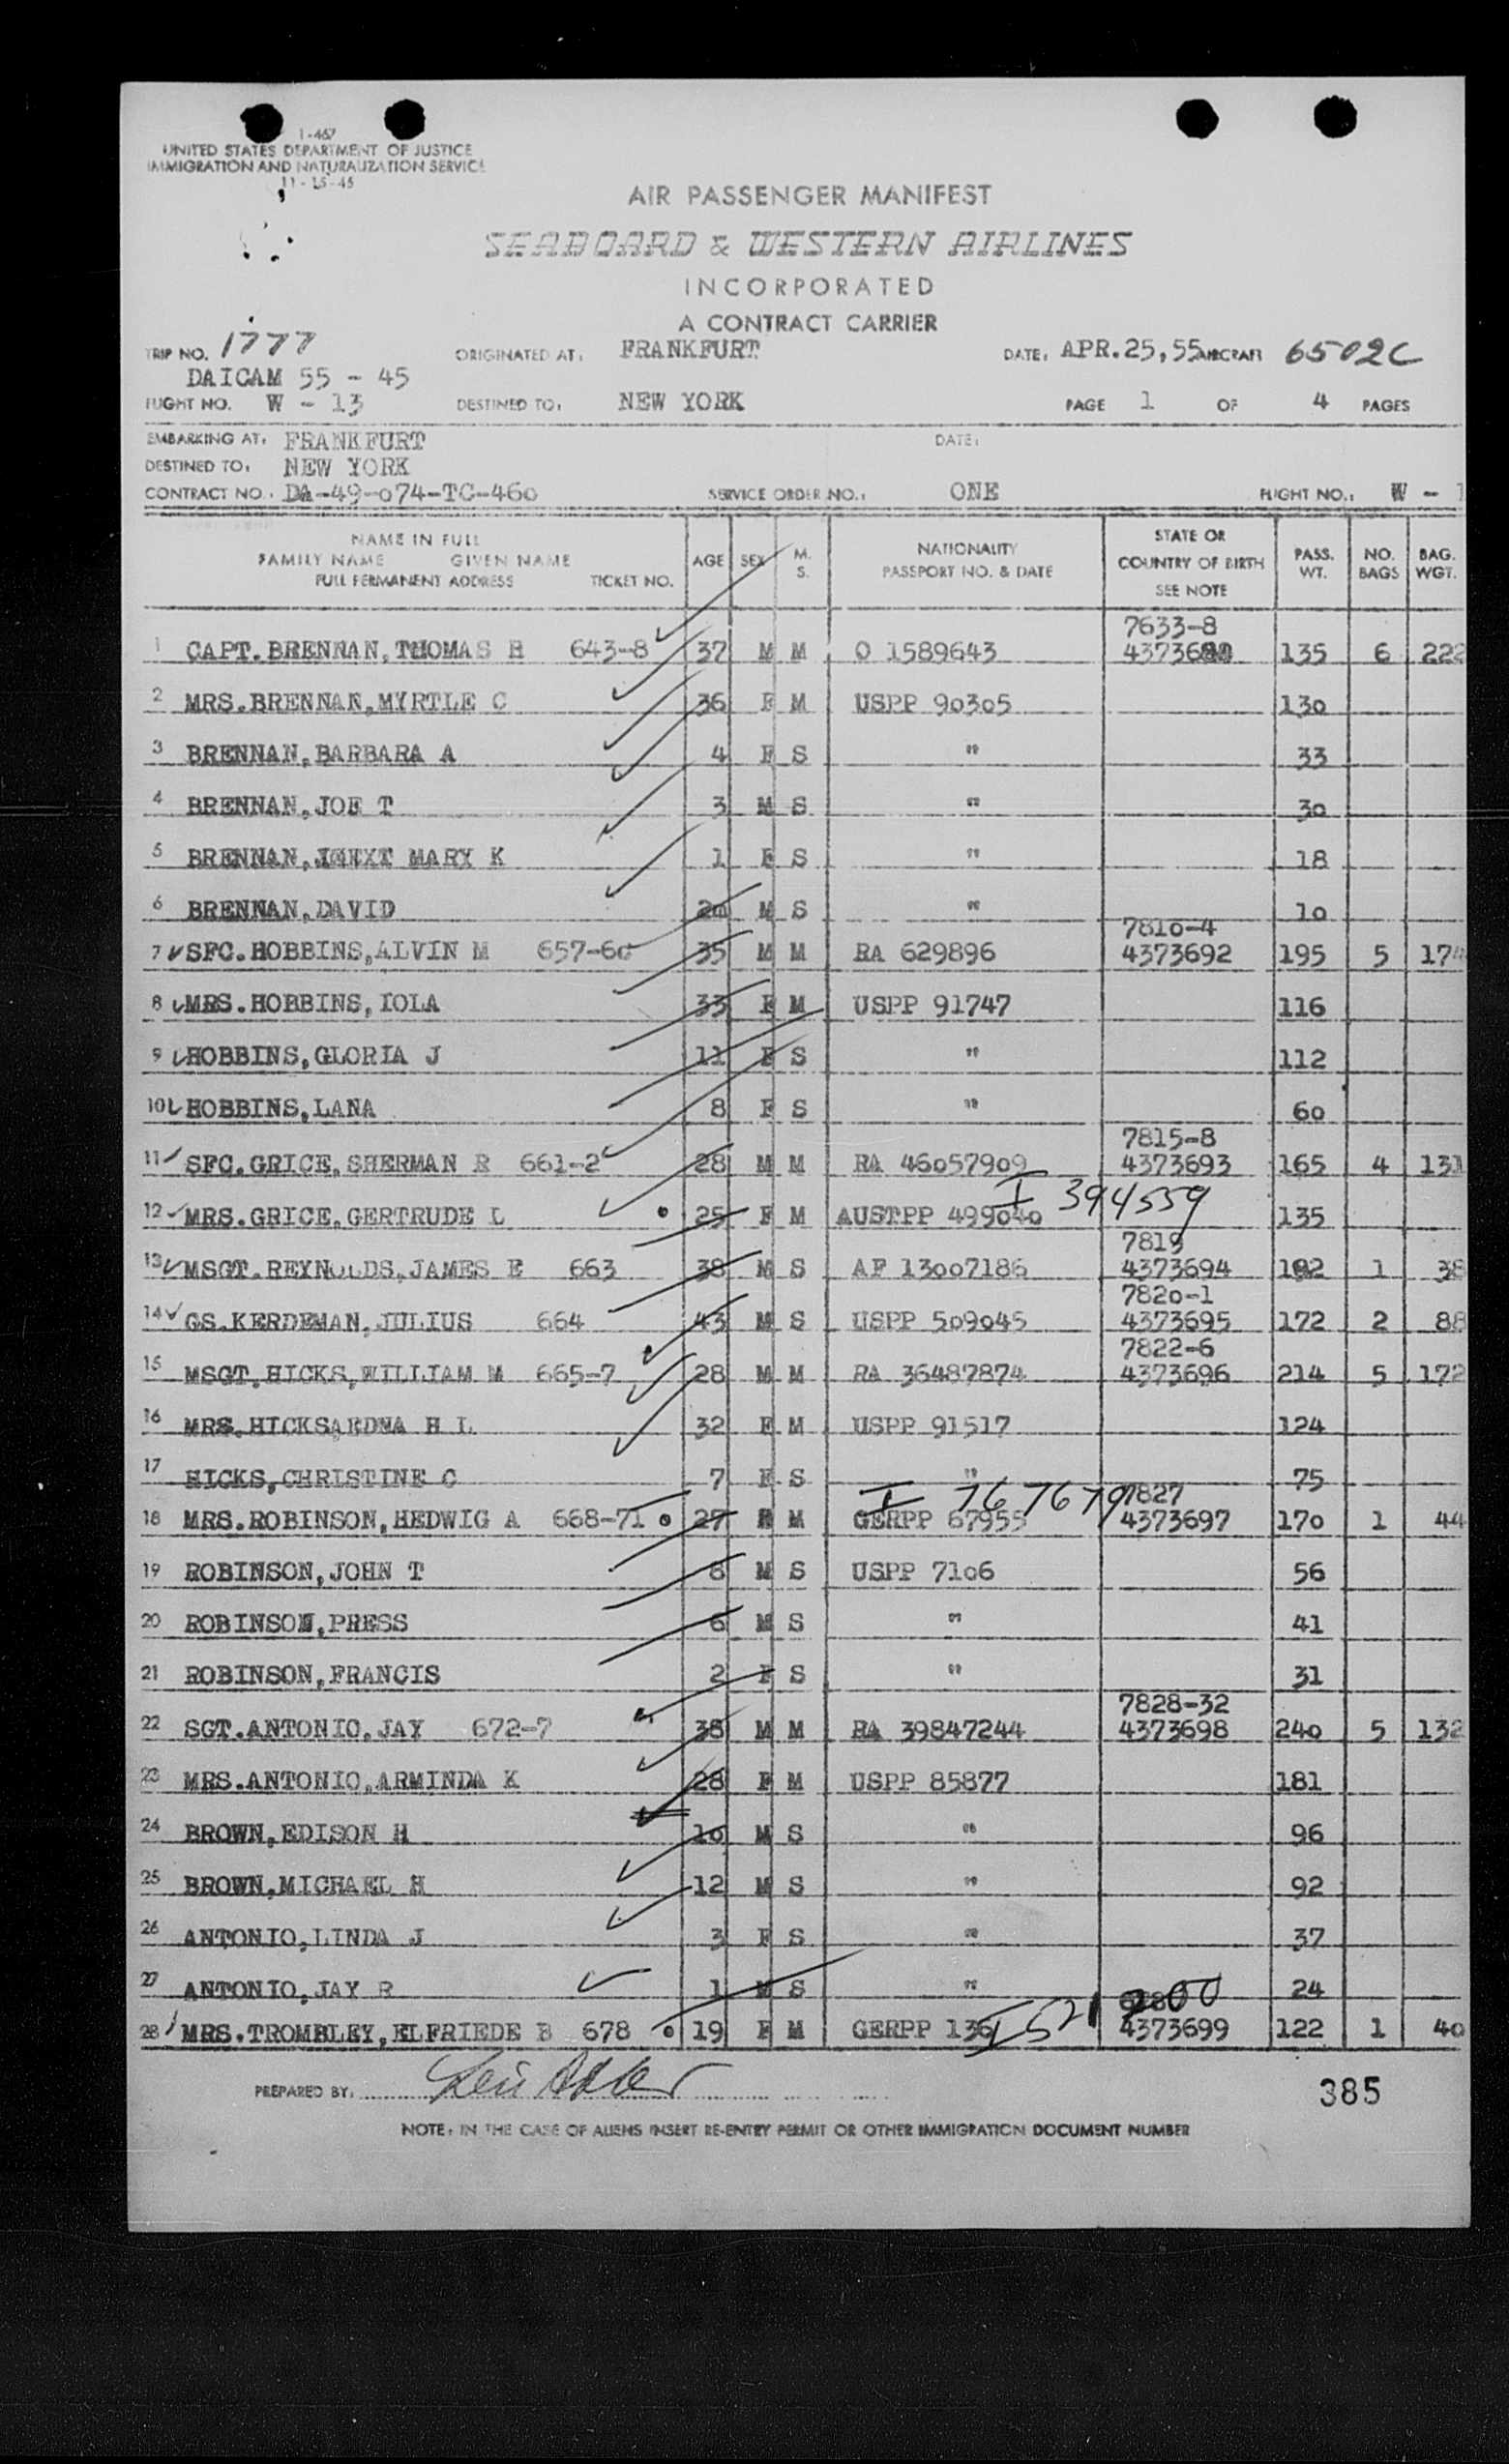 1-467
UNITED STATES DEPARTMENT OF JUSTICE
IMMIGRATION AND NATURALIZATION SERVICE
11-15-45
AIR PASSENGER MANIFEST
SEABOARD & WESTERN AIRLINES
INCORPORATED
A CONTRACT CARRIER
TRIP NO. 1777 ORIGINATED AT: FRANKFURT DATE: APR.25,55 AIRCRAFT 6502C
DAICAM 55 - 45
FLIGHT NO. W - 13 DESTINED TO: NEW YORK PAGE 1 OF 4 PAGES
EMBARKING AT: FRANKFURT DATE:
DESTINED TO: NEW YORK
CONTRACT NO.: DA-49-074-TC-460 SERVICE ORDER NO.: ONE FLIGHT NO.: W - 1
NAME IN FULL
FAMILY NAME GIVEN NAME
FULL PERMANENT ADDRESS TICKET NO. AGE SEX M. S. NATIONALITY PASSPORT NO. & DATE STATE OR COUNTRY OF BIRTH SEE NOTE PASS. WT. NO. BAGS BAG. WGT.
7633-8
1 CAPT.BRENNAN,THOMAS H 643-8 37 M M O 1589643 135 6 222
2 MRS.BRENNAN,MYRTLE C 36 F M USPP 90305 130
3 BRENNAN,BARBARA A 4 F S " 33
4 BRENNAN,JOE T 3 M S " 30
5 BRENNAN, MARY K 1 F S " 18
6 BRENNAN,DAVID 2m M S " 10
7810-4
7 SFC.HOBBINS,ALVIN M 657-60 35 M M RA 629896 4373692 195 5 174
8 MRS.HOBBINS,IOLA 33 F M USPP 91747 116
9 HOBBINS,GLORIA J 11 F S " 112
10 HOBBINS,LANA 8 F S " 60
7815-8
11 SFC.GRICE,SHERMAN R 661-2 28 M M RA 46057909 4373693 165 4 131
I 394559
12 MRS.GRICE,GERTRUDE L 25 F M AUSTPP 499040 135
7819
13 MSGT.REYNOLDS,JAMES E 663 38 M S AF 13007186 4373694 192 1 38
7820-1
14 GS.KERDEMAN,JULIUS 664 43 M S USPP 509045 4373695 172 2 88
7822-6
15 MSGT.HICKS,WILLIAM M 665-7 28 M M RA 36487874 4373696 214 5 172
16 MRS.HICKSARDNA H L 32 F M USPP 91517 124
17 HICKS,CHRISTINE C 7 F S " 75
I 767679 7827
18 MRS.ROBINSON,HEDWIG A 668-71 27 F M GERPP 67955 4373697 170 1 44
19 ROBINSON,JOHN T 8 M S USPP 7106 56
20 ROBINSON,PRESS 6 M S " 41
21 ROBINSON,FRANCIS 2 F S " 31
7828-32
22 SGT.ANTONIO,JAY 672-7 38 M M RA 39847244 4373698 240 5 132
23 MRS.ANTONIO,ARMINDA K 28 F M USPP 85877 181
24 BROWN,EDISON H 10 M S " 96
25 BROWN,MICHAEL H 12 M S " 92
26 ANTONIO,LINDA J 3 F S " 37
27 ANTONIO,JAY R 1 M S " 24
28 MRS.TROMBLEY,ELFRIEDE B 678 19 F M GERPP 136 I 521200 4373699 122 1 40
PREPARED BY:
385
NOTE: IN THE CASE OF ALIENS INSERT RE-ENTRY PERMIT OR OTHER IMMIGRATION DOCUMENT NUMBER